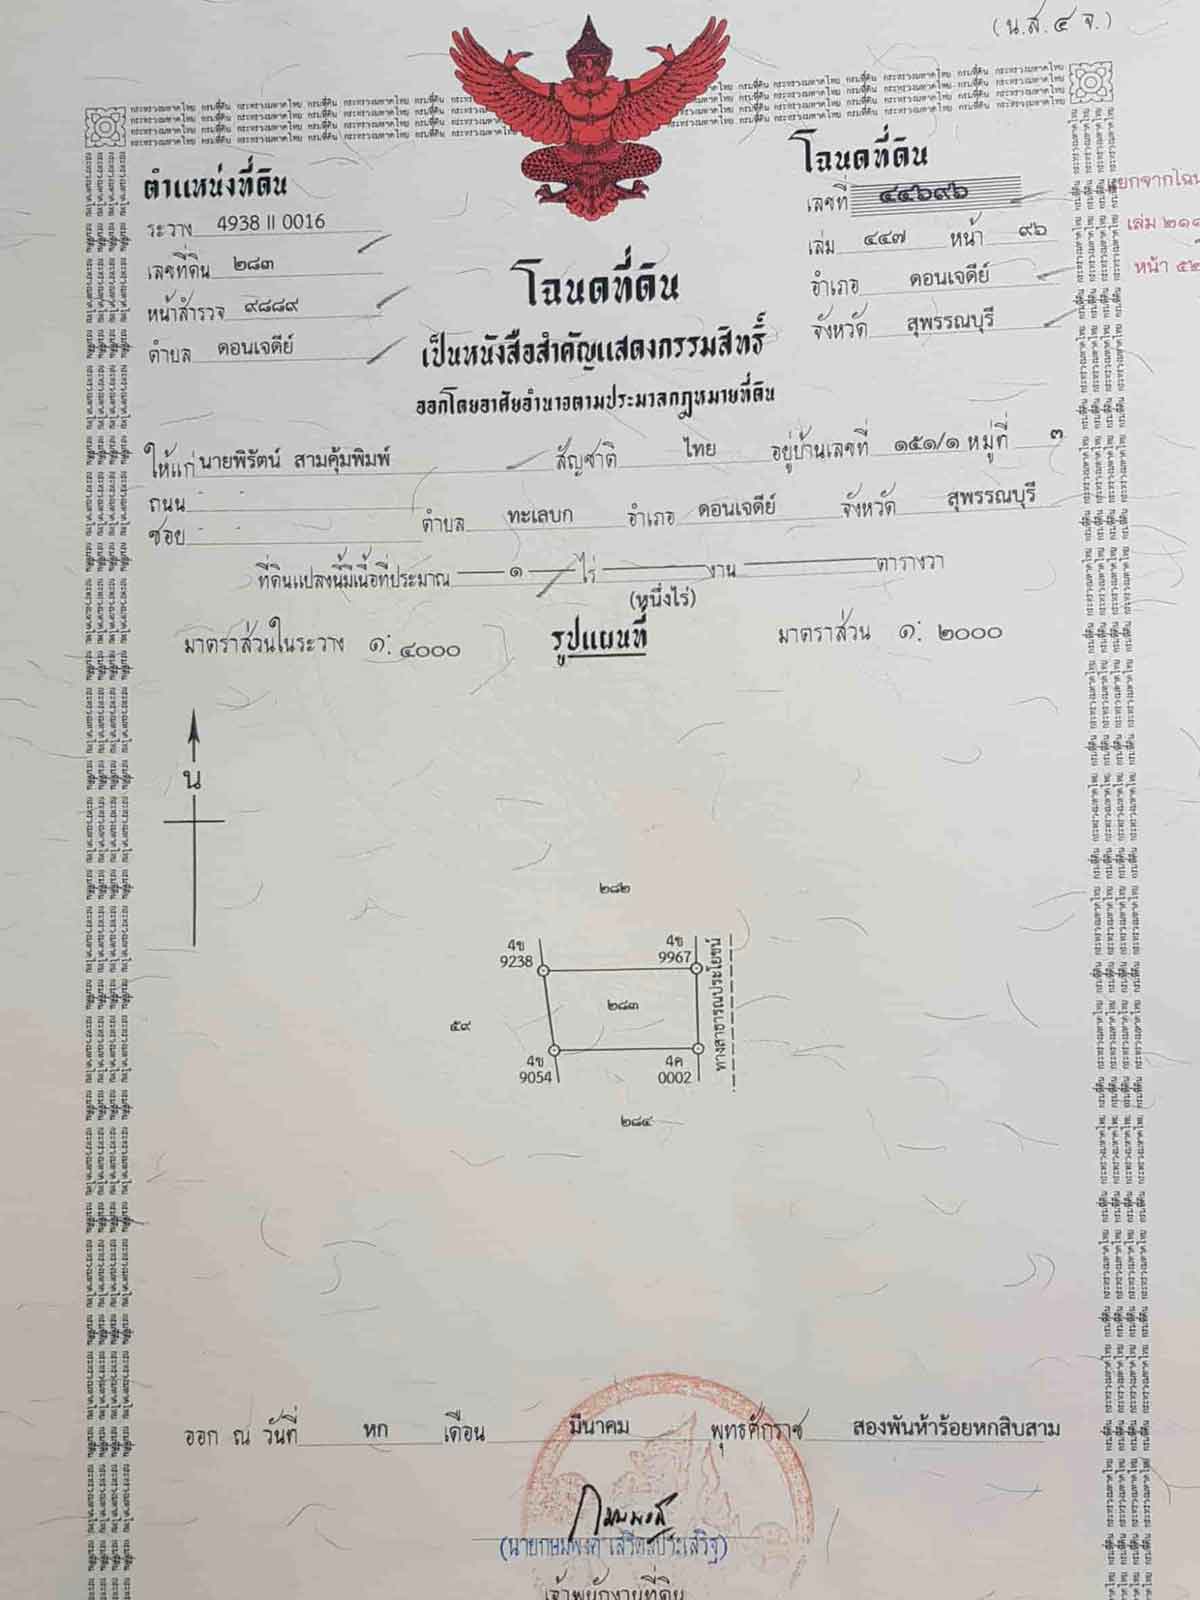 (น.ส.๔ จ.)
ตำแหน่งที่ดิน
ระวาง 4938 II 0016
เลขที่ดิน ๒๘๓
หน้าสำรวจ ๙๘๘๙
ตำบล ดอนเจดีย์
โฉนดที่ดิน
เลขที่ ๔๔๖๙๖
เล่ม ๔๔๗ หน้า ๙๖
อำเภอ ดอนเจดีย์
จังหวัด สุพรรณบุรี
เล่ม ๒๑๘
หน้า ๕๒
โฉนดที่ดิน
เป็นหนังสือสำคัญแสดงกรรมสิทธิ์
ออกโดยอาศัยอำนาจตามประมวลกฎหมายที่ดิน
ให้แก่ นายพิรัตน์ สามคุ้มพิมพ์ สัญชาติ ไทย อยู่บ้านเลขที่ ๑๕๑/๑ หมู่ที่ ๓
ถนน -
ซอย - ตำบล ทะเลบก อำเภอ ดอนเจดีย์ จังหวัด สุพรรณบุรี
ที่ดินแปลงนี้มีเนื้อที่ประมาณ ๑ ไร่ งาน ตารางวา
(หนึ่งไร่)
มาตราส่วนในระวาง ๑:๔๐๐๐ รูปแผนที่ มาตราส่วน ๑:๒๐๐๐
น
๒๘๒
4ข
9238
4ข
9967
ทางสาธารณประโยชน์
๒๘๓
๕๙
4ข
9054
4ค
0002
๒๘๔
ออก ณ วันที่ หก เดือน มีนาคม พุทธศักราช สองพันห้าร้อยหกสิบสาม
เจ้าพนักงานที่ดิน